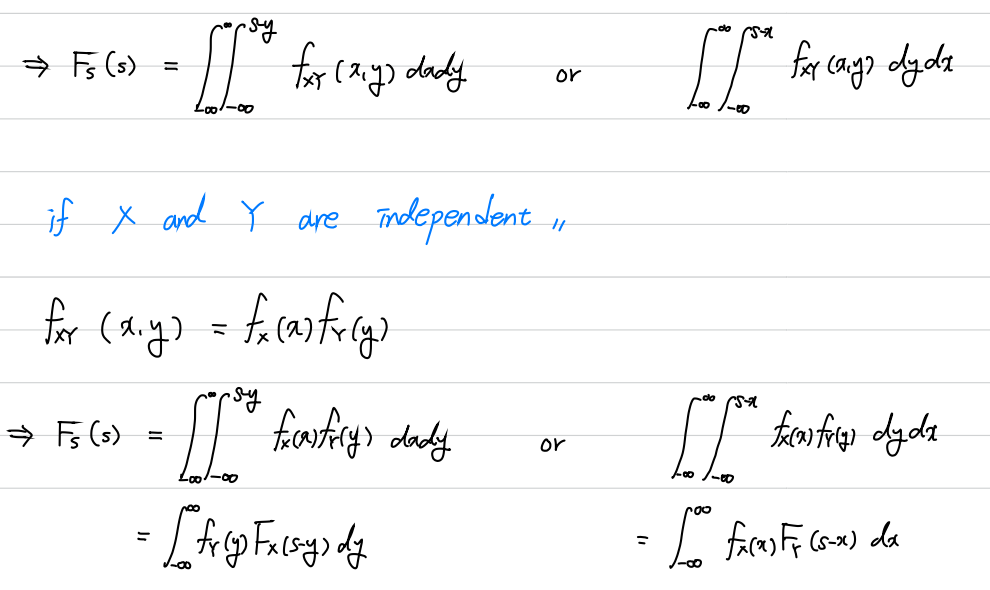 ⇒ F_S(s) = ∫_{-∞}^{∞} ∫_{-∞}^{s-y} f_{XY}(x,y) dxdy or ∫_{-∞}^{∞} ∫_{-∞}^{s-x} f_{XY}(x,y) dydx
if X and Y are independent,,
f_{XY}(x,y) = f_X(x)f_Y(y)
⇒ F_S(s) = ∫_{-∞}^{∞} ∫_{-∞}^{s-y} f_X(x)f_Y(y) dxdy or ∫_{-∞}^{∞} ∫_{-∞}^{s-x} f_X(x)f_Y(y) dydx
= ∫_{-∞}^{∞} f_Y(y)F_X(s-y)dy = ∫_{-∞}^{∞} f_X(x)F_Y(s-x) dx